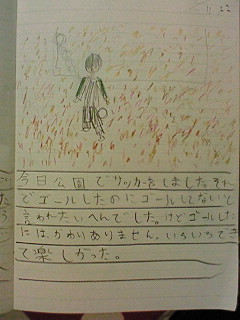 11.22
今日公園でサッカーをしました。それ
でゴールしたのにゴールしてないと
言われたいへんでした。けどゴールした
には、かわりありません。いろいろでき
て楽しかった。